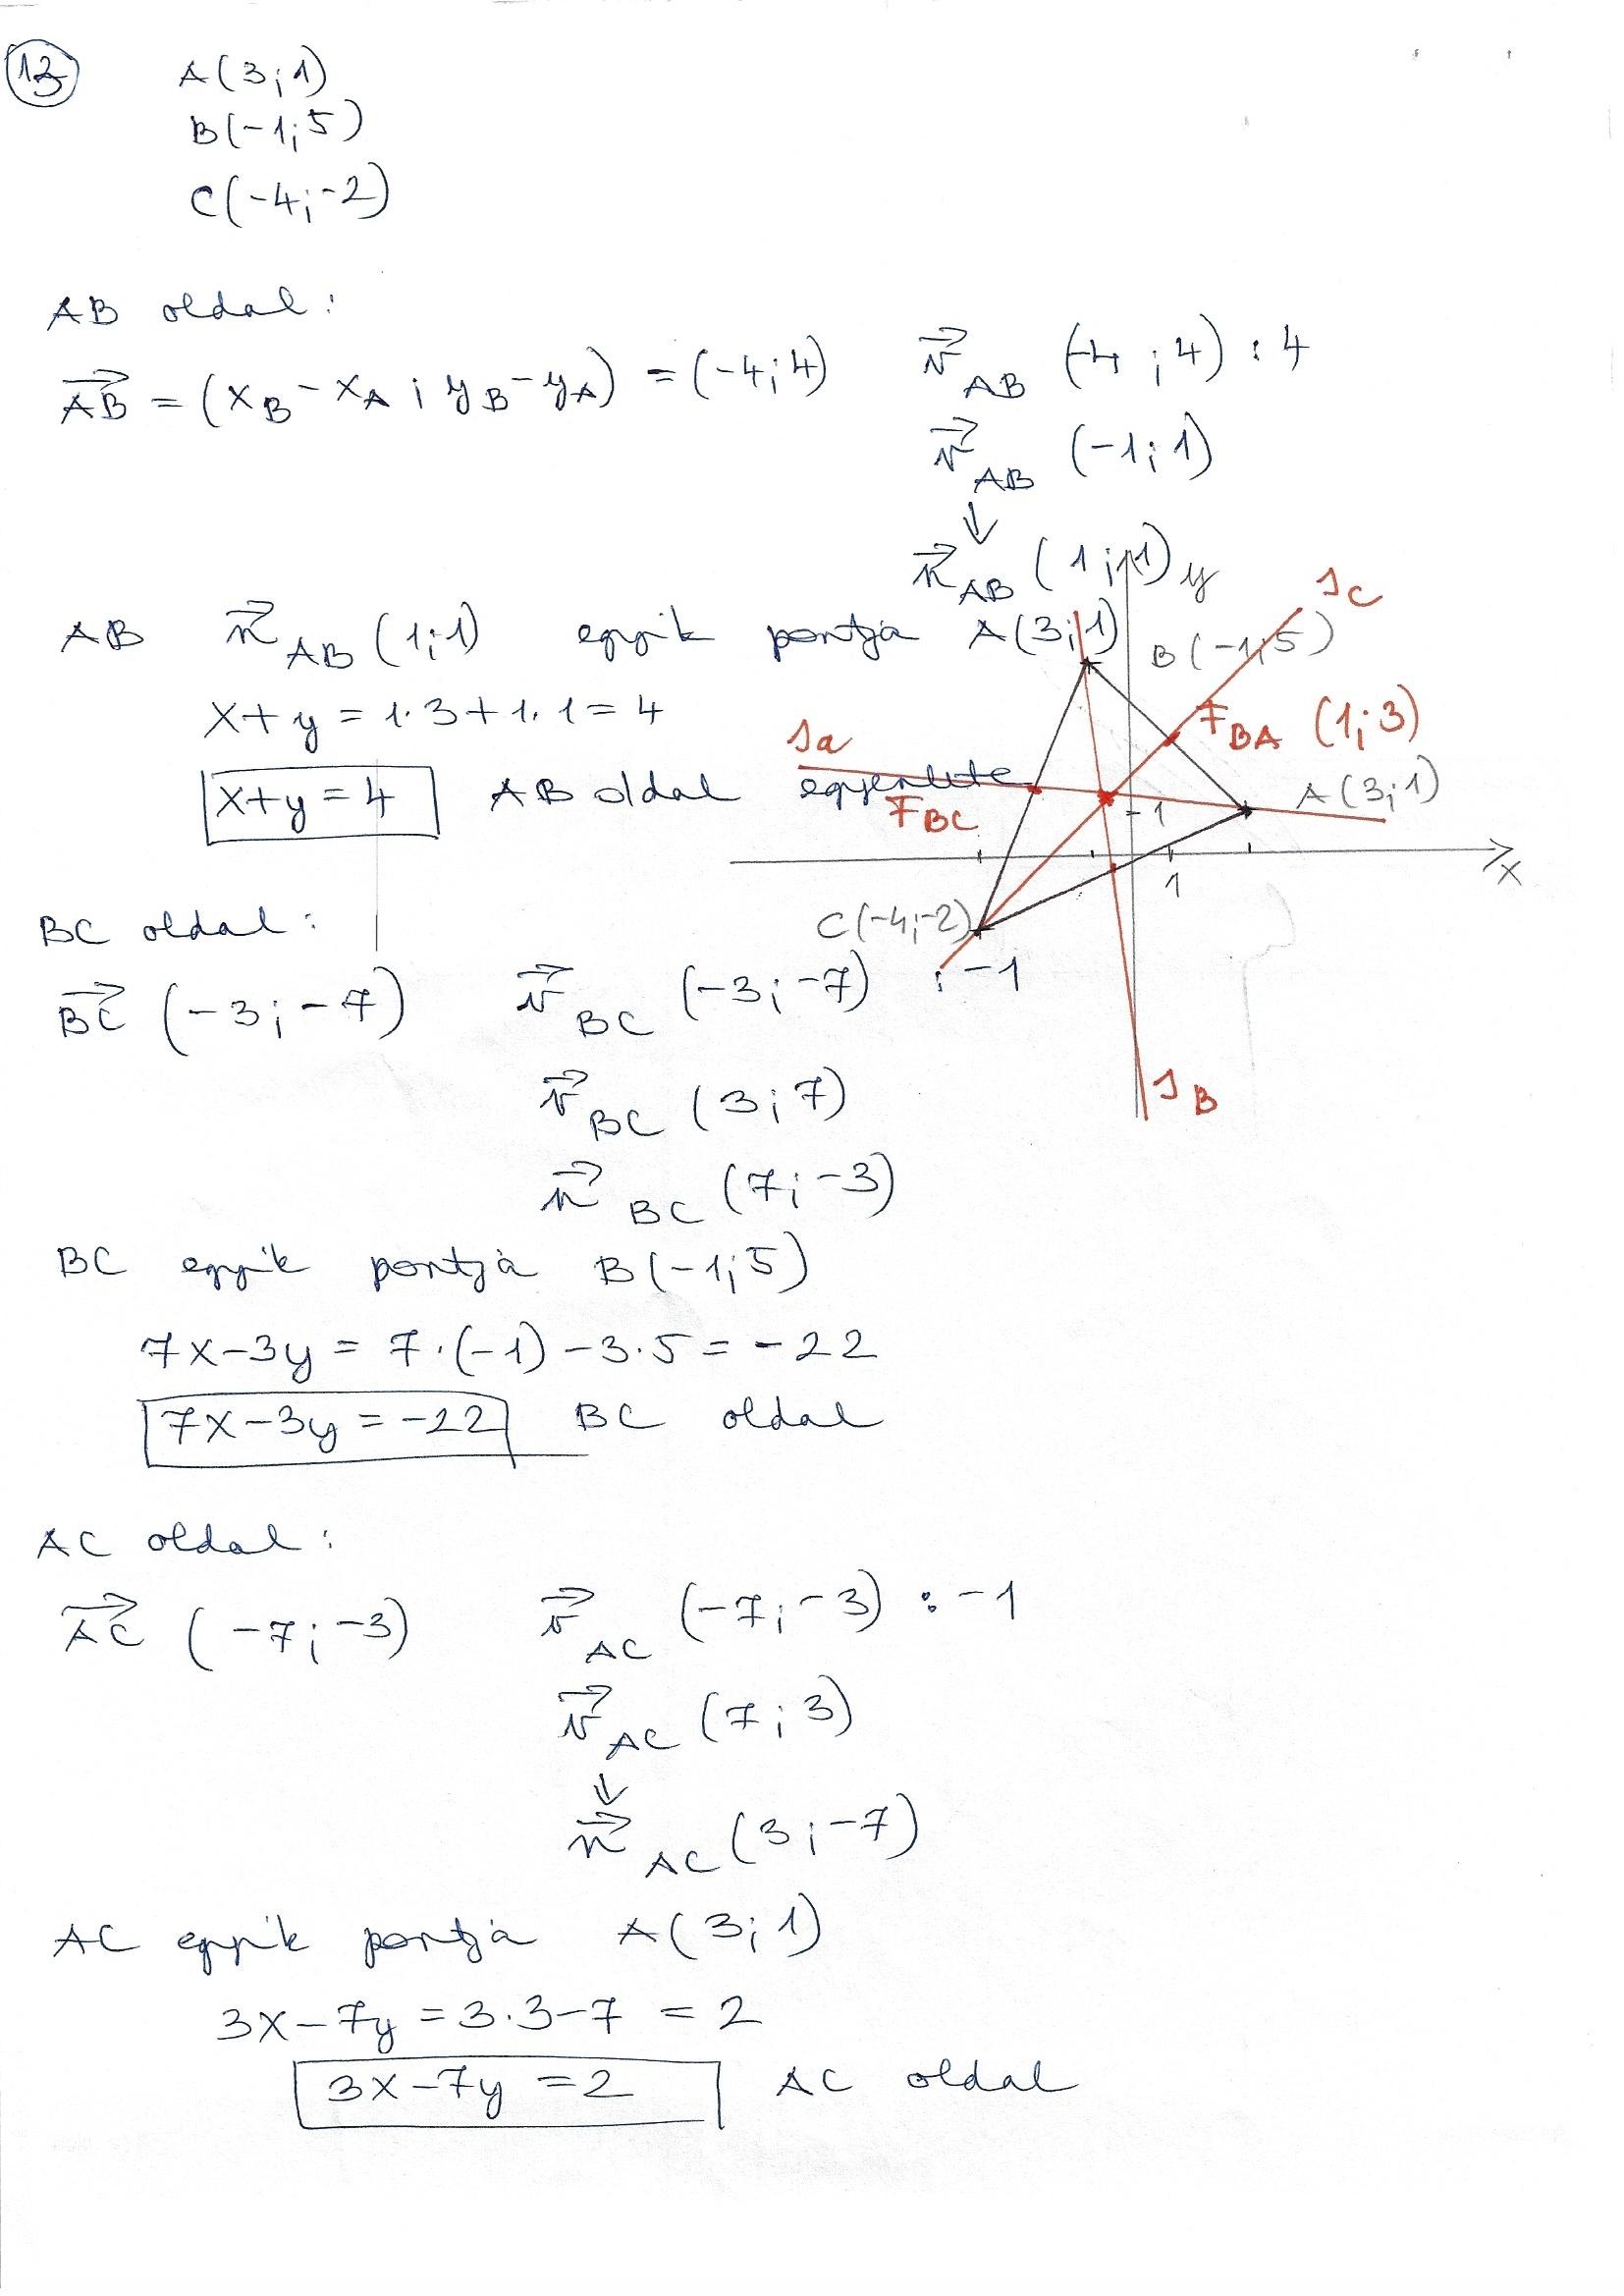 13
A(3;1)
B(-1;5)
C(-4;-2)
AB oldal:
→AB = (xB - xA ; yB - yA) = (-4;4)
→v AB (-4;4) :4
→v AB (-1;1)
↓
→n AB (1;1)
AB →n AB (1;1) egyik pontja A(3;1)
x+y = 1·3+1·1 = 4
x+y = 4 AB oldal egyenlete
y
sC
B(-1;5)
FBA (1;3)
sa
FBC
A(3;1)
1
1
x
C(-4;-2)
sB
BC oldal:
→BC (-3;-7)
→v BC (-3;-7) :-1
→v BC (3;7)
→n BC (7;-3)
BC egyik pontja B(-1;5)
7x-3y = 7·(-1)-3·5 = -22
7x-3y = -22 BC oldal
AC oldal:
→AC (-7;-3)
→v AC (-7;-3) :-1
→v AC (7;3)
↓
→n AC (3;-7)
AC egyik pontja A(3;1)
3x-7y = 3·3-7 = 2
3x-7y = 2 AC oldal